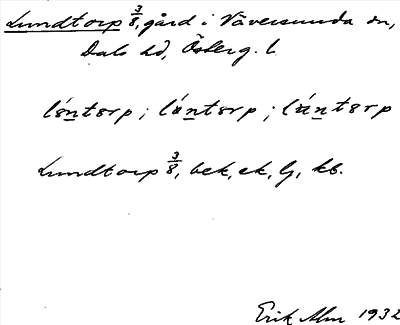 Lundtorp 3/8, gård i Väversunda sn,
Dals hd, Österg. l.
lóntorp ; lántorp ; lántorp
Lundtorp 3/8, bek, ek, lj, kb.
Erik Alm 1932